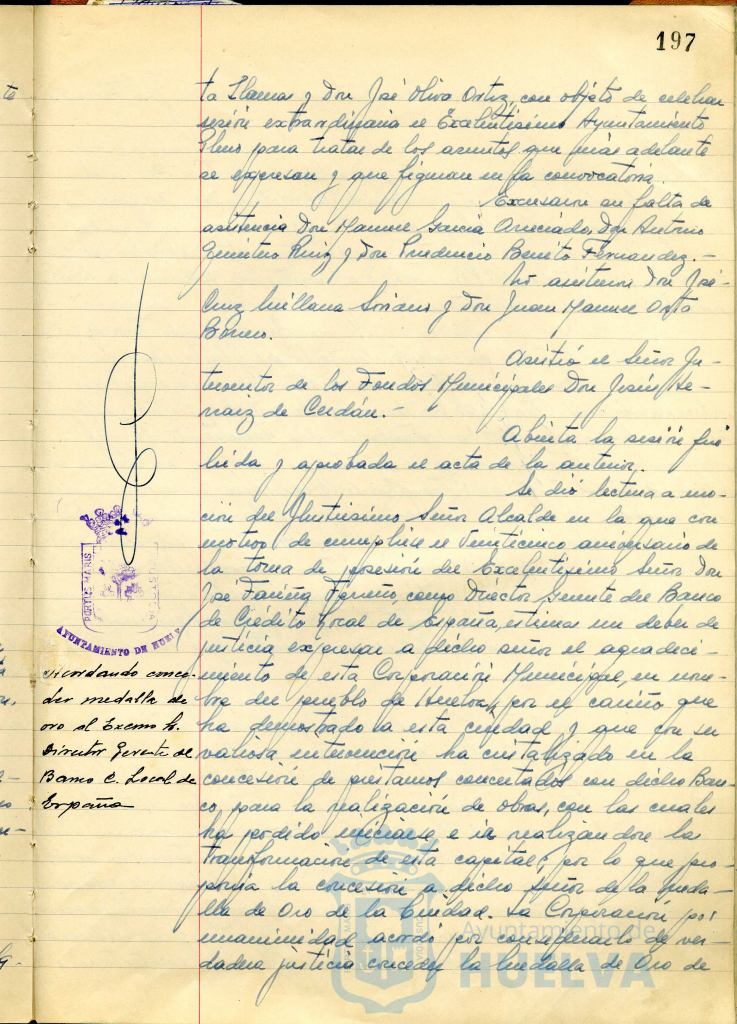 197
ta Llamas y Don José Oliva Ortiz, con objeto de celebrar
sesión extraordinaria el Excelentísimo Ayuntamiento
Pleno para tratar de los asuntos que más adelante
se expresan y que figuran en la convocatoria.
Excusaron su falta de
asistencia Don Manuel García Don Antonio
Quintero Ruiz y Don Prudencio Benito Fernández.-
No asistieron Don José
Cruz Millana Soriano y Don Juan Manuel Orta
Asistió el Señor In-
terventor de los Fondos Municipales Don Jesús Se-
rraiz de Cerdán.-
Abierta la sesión fué
leída y aprobada el acta de la anterior.
Se dió lectura a mo-
ción del Ilustrísimo Señor Alcalde en la que con
motivo de cumplirse el veinticinco aniversario de
la toma de posesión del Excelentísimo Señor Don
José Fariña Ferreño, como Director Gerente del Banco
de Crédito Local de España, estima un deber de
justicia expresar a dicho señor el agradeci-
miento de esta Corporación Municipal, en nom-
bre del pueblo de Huelva, por el cariño que
ha demostrado a esta ciudad y que con su
valiosa intervención ha cristalizado en la
concesión de préstamos concertados con dicho Ban-
co, para la realización de obras, con las cuales
ha podido iniciarse e ir realizándose la
transformación de esta capital; por lo que pro-
ponía la concesión a dicho señor de la meda-
lla de Oro de la Ciudad. La Corporación por
unanimidad acordó por considerarlo de ver-
dadera justicia conceder la Medalla de Oro de
PORTUS MARIS
AYUNTAMIENTO DE HUELV
Acordando conce-
der medalla de
oro al Excmo Sr.
Director Gerente del
Banco C. Local de
España
Ayuntamiento de
HUELVA